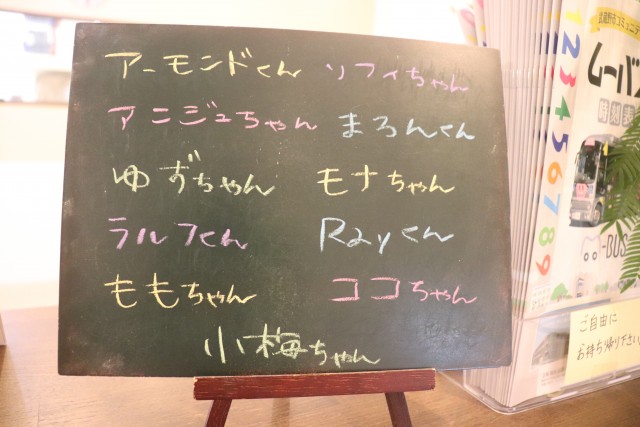 アーモンドくん ソフィちゃん
アニジュちゃん まろんくん
ゆずちゃん モナちゃん
ラルフくん Rayくん
ももちゃん ココちゃん
小梅ちゃん
武蔵野市コミュニティ
ムーバス
時刻表
1
2
3
4
5
6
7
8
9
-BUS
ご自由に
お持ち帰り下さい